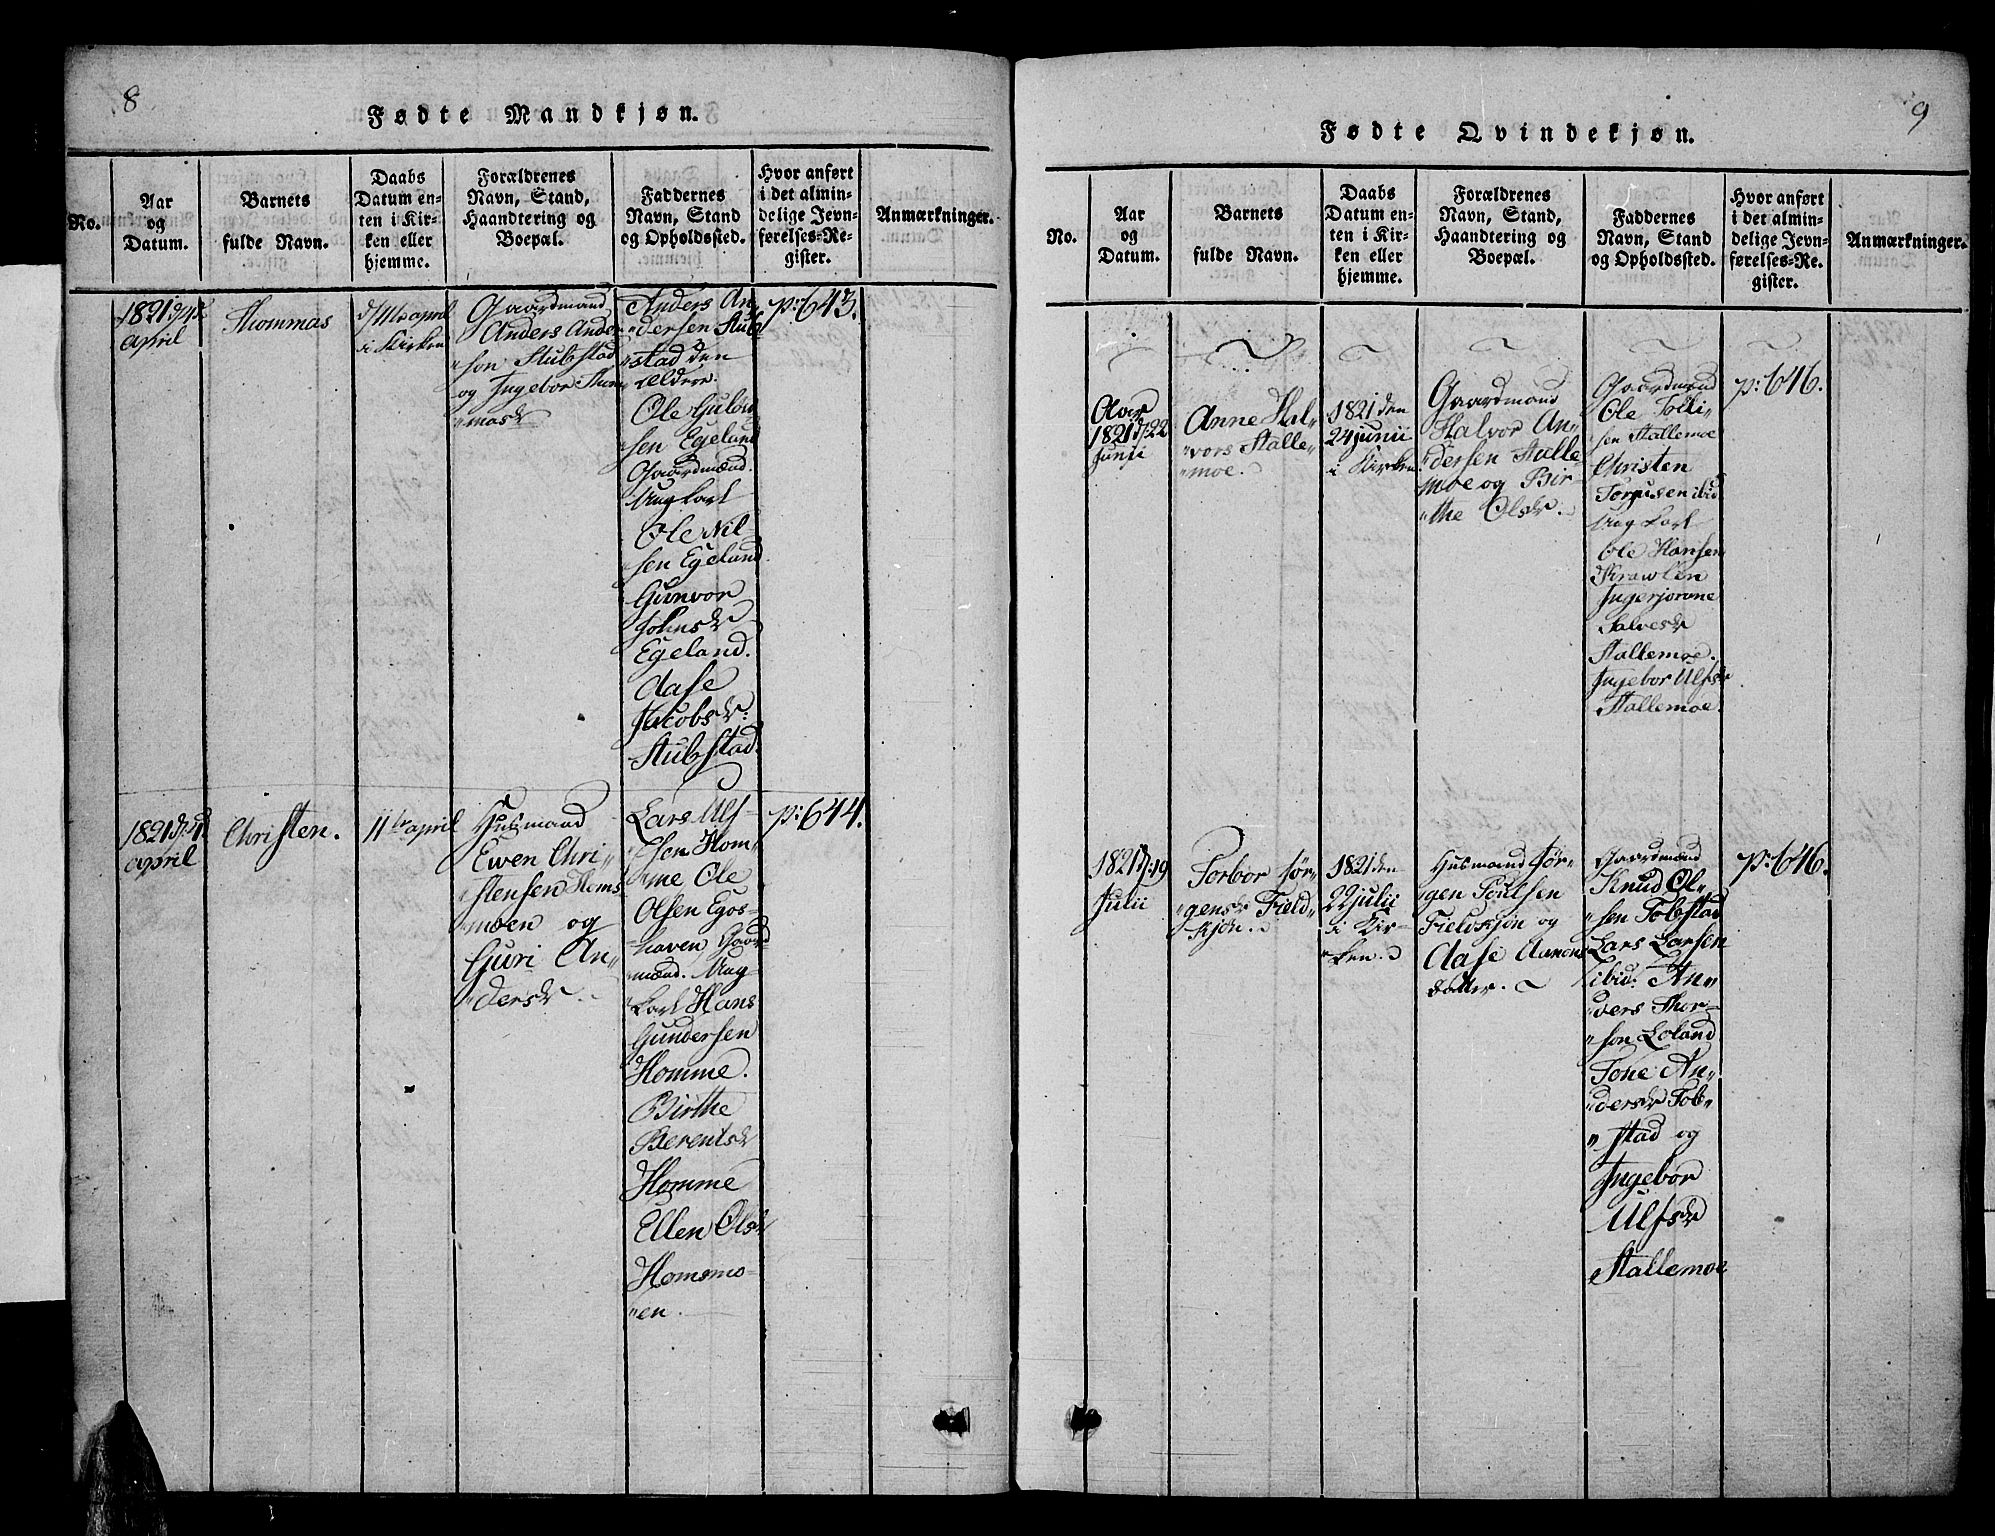 8
Fødte Mandkjøn.
No.
Aar
og
Datum.
Barnets
fulde Navn.
Daabs
Datum en-
ten i Kir-
ken eller
hjemme.
Forældrenes
Navn, Stand,
Haandtering og
Boepæl.
Faddernes
Navn, Stand
og Opholdssted.
Hvor anført
i det almin-
delige Jevn-
førelses-Re-
gister.
Anmærkninger.
1821
april
Thommas
april
i Kirken
Gaardmand
Anders Ander
sen Stubstad
og Ingebor Thom
masdr
Anders An-
dersen Stub
stad den
ældere.
Ole
sen Egeland
Gaardmænd.
Ungkarl
Ole Nil-
sen Egeland
Gunvor
Johnsdr
Egeland.
Aase
Jacobsdr:
Stubstad.
p: 643.
1821
april
Christen.
11te april
Husmand
Ewen Chri-
stensen Homs
moen og
Guri An-
dersdr.
Lars Ulf-
sen Hom-
me Ole
Olsen Egos-
haven Gaard
mænd. Ung-
karl Hans
Gundersen
Homme.
Birthe
Berentsdr
Homme
Ellen Olsdr
Homsmo-
en.
p: 644.
9
Fødte Qvindekjøn.
No.
Aar
og
Datum.
Barnets
fulde Navn.
Daabs
Datum en-
ten i Kir-
ken eller
hjemme.
Forældrenes
Navn, Stand,
Haandtering og
Boepæl.
Faddernes
Navn, Stand
og Opholdssted.
Hvor anført
i det almin-
delige Jevn-
førelses-Re-
gister.
Anmærkninger.
Aar
1821 d: 22
Junii
Anne Hal-
vors Stalle-
moe.
1821 den
24 junii
i Kirken
Gaardmand
Halvor An-
dersen Stalle
moe og Bir-
the Olsdr.
Gaardmænd
Ole Tolli-
sen Stallemoe
Christen
Torjusen ibid
Ungkarl
Ole Hansen
Ingerjorone
Salvesdr
Stallemoe.
Ingebor Ulfsdr
Stallemoe.
p: 646.
1821 d: 19
Julii
Torbor Jør-
gensdr Field-
kjøn.
1821 den
22 julii
i Kir-
ken.
Husmand Jør-
gen Poulsen
Fieldskjøn og
Aase Aanons
datter.
Gaardmænd
Knud Ol-
sen Tobstad
Lars Larsen
ibid: An-
ders Thor-
sen Loland
Tone An-
dersdr Tob-
stad og
Ingebor
Ulfsdr
Stallemoe
p: 646.